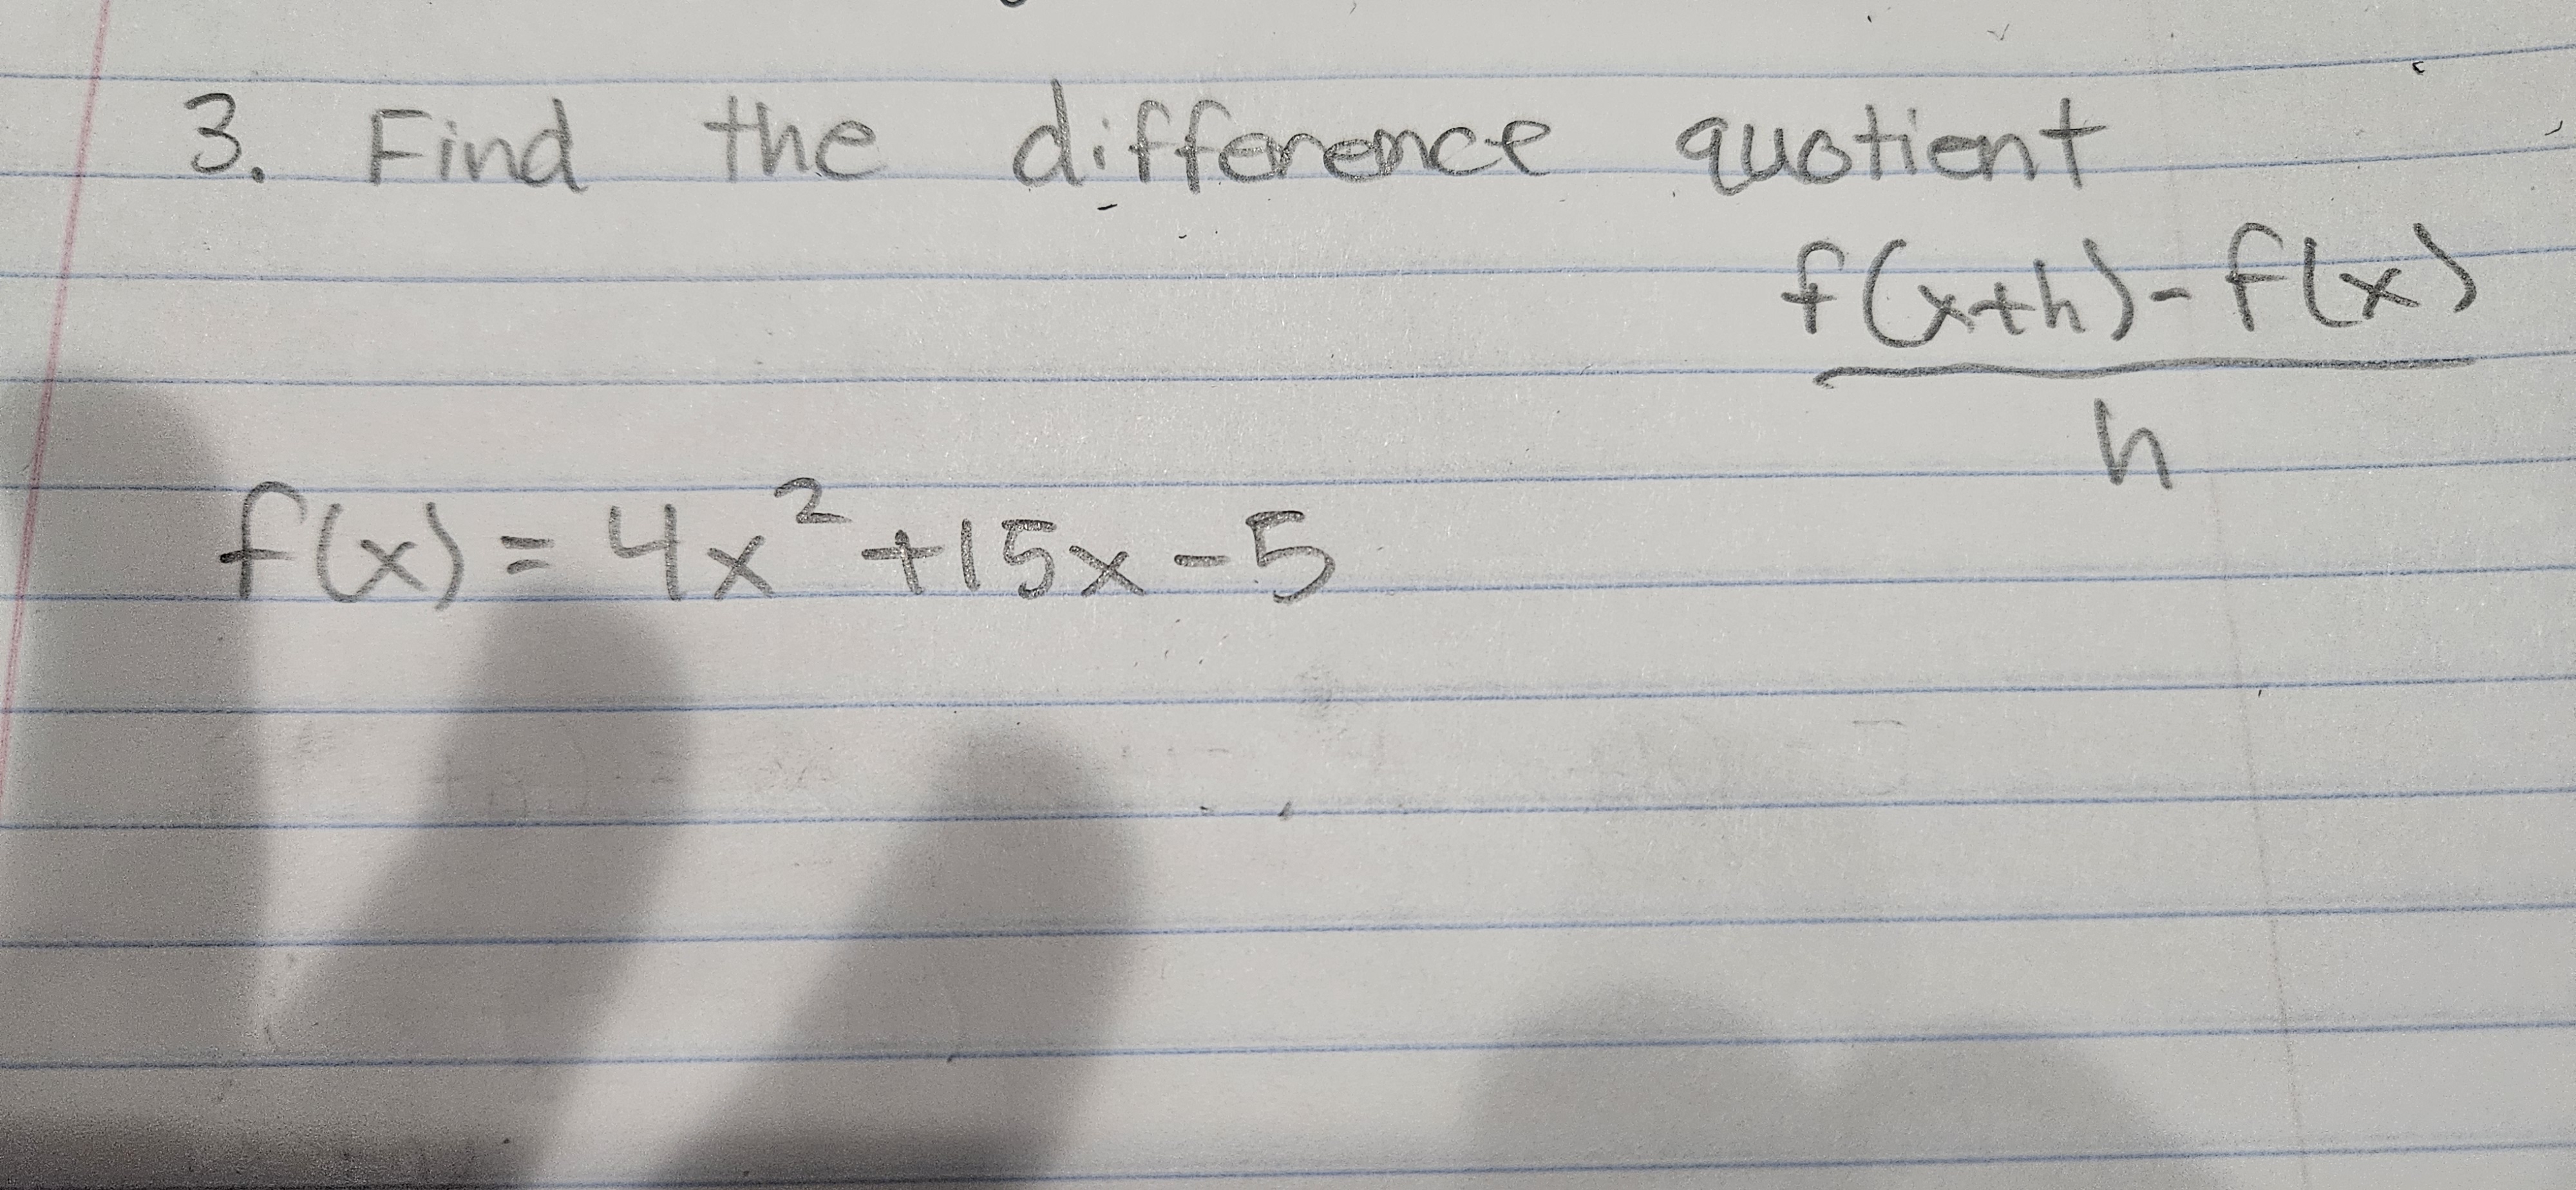 3. Find the difference quotient
f(x+h)-f(x)
h
f(x)=4x²+15x-5